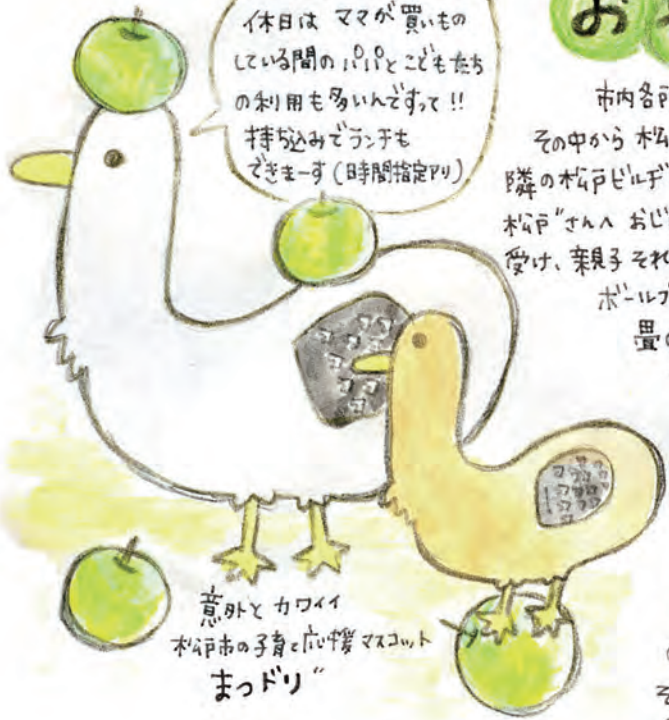 休日は ママが 買いもの
している間の パパと こどもたち
の利用も 多いんですって!!
持ち込みで ランチも
できまーす(時間指定アリ)
お
市内各
その中から 松
隣の松戸ビルヂ
松戸"さんへ おじ
受け、親子 それ
ボールプ
畳
意外と カワイイ
松戸市の子育て応援マスコット
まつドリ"
そ